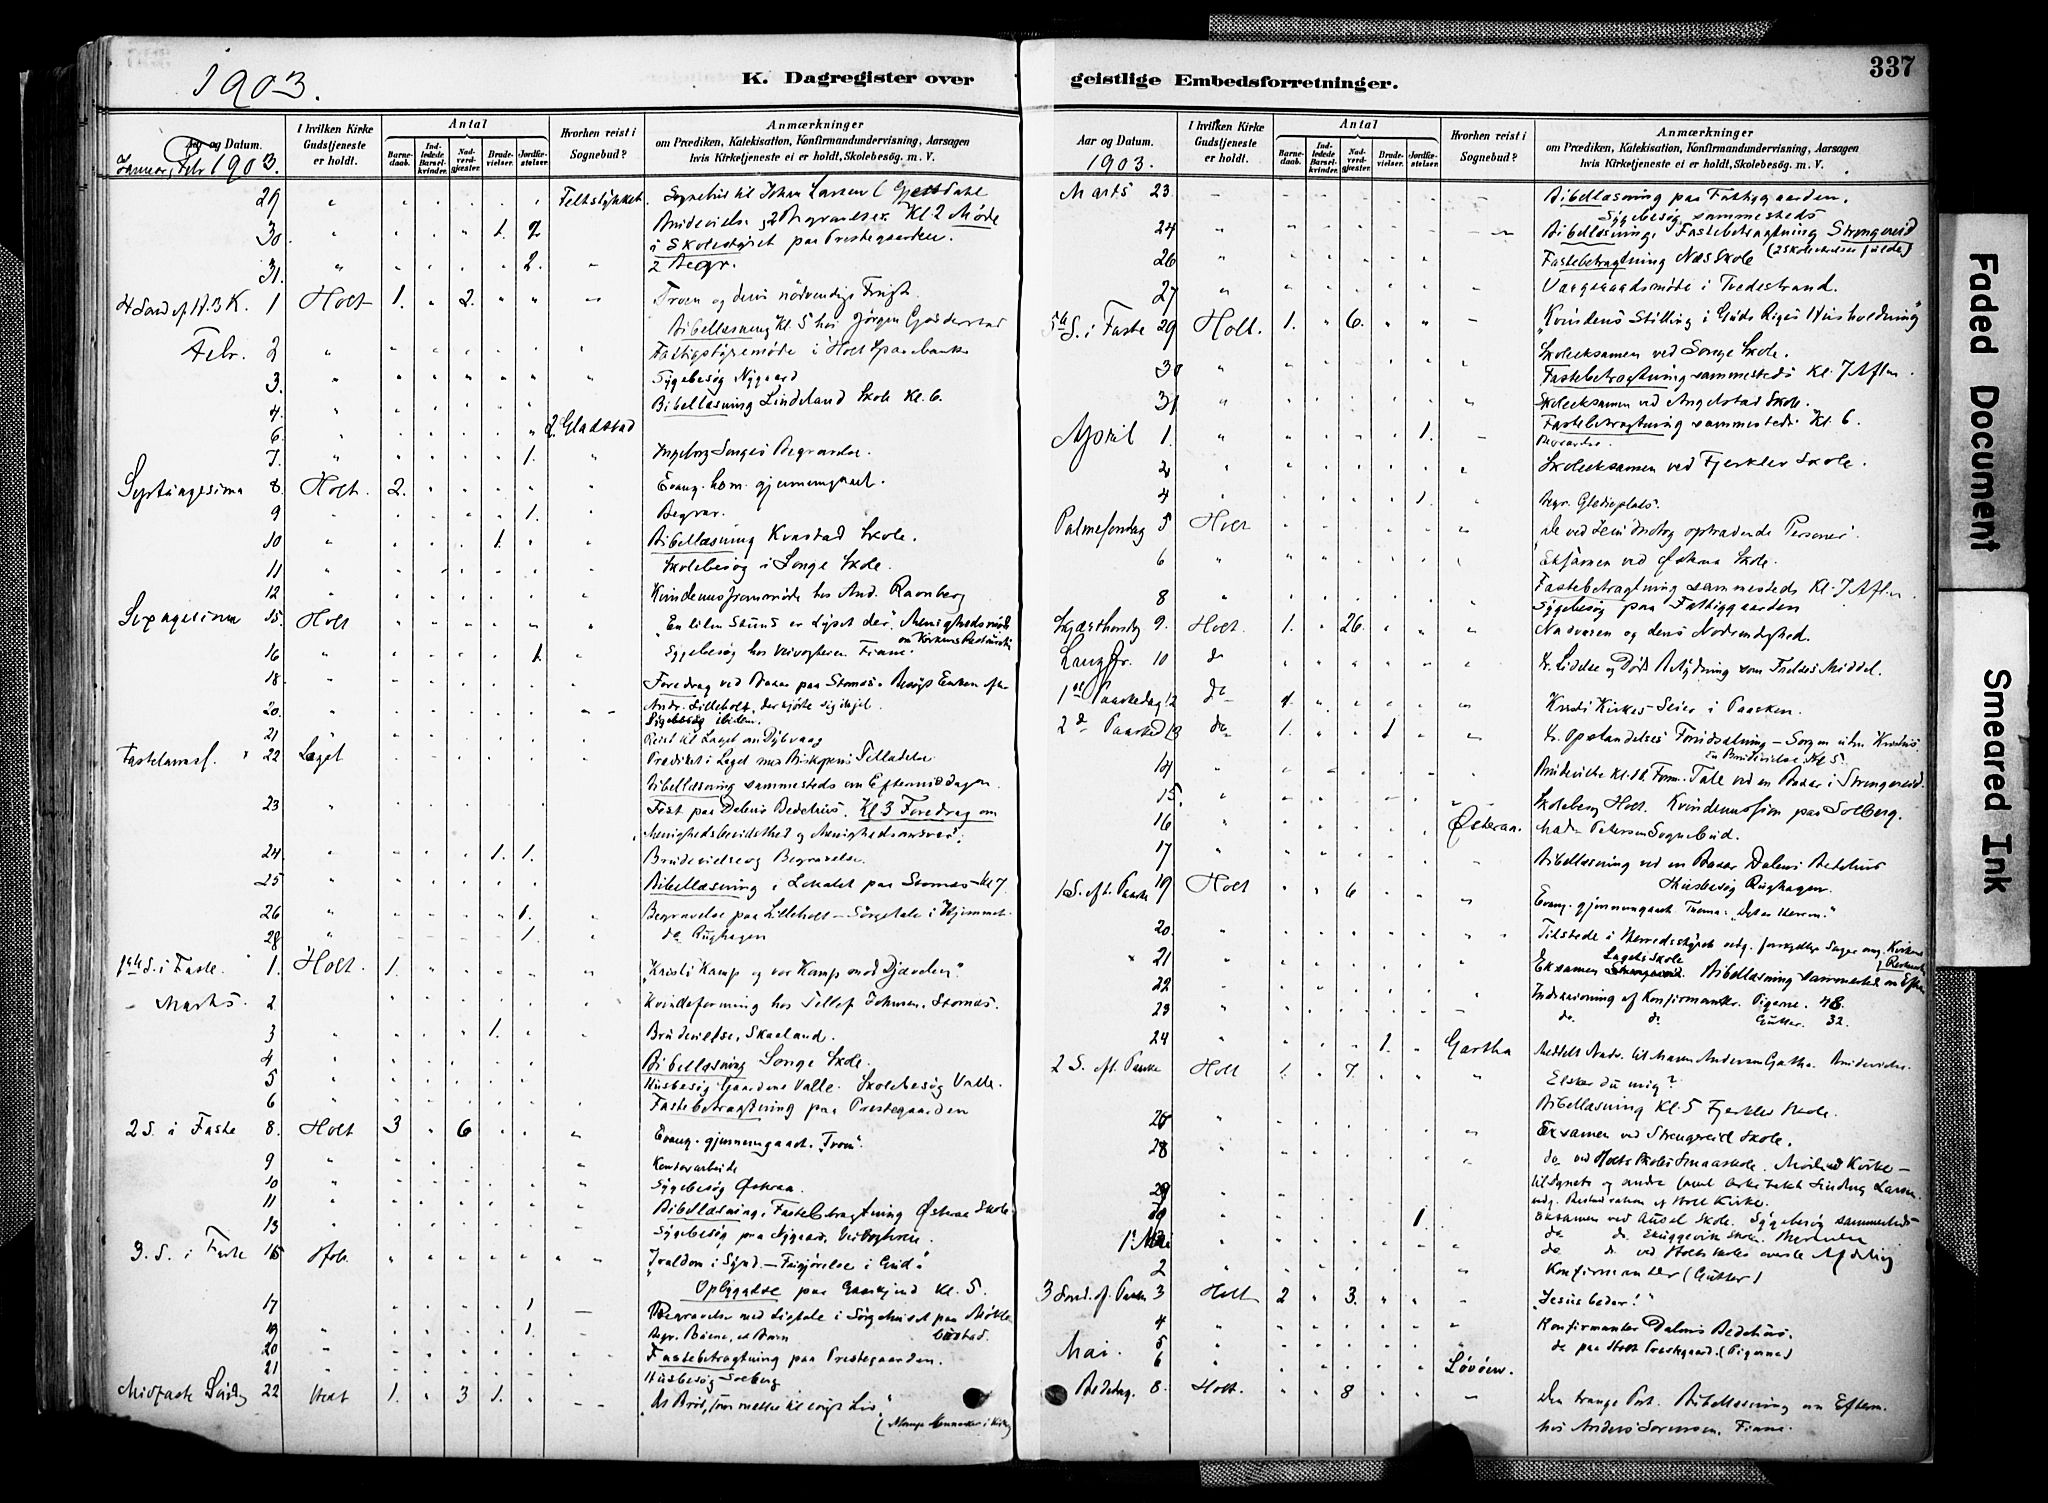 1903.
K. Dagregister over
Aar og Datum.
Januar, Febr 1903.
I hvilken Kirke Gudstjeneste er holdt.
Antal
Barnedaab.
Indledede Barselkvinder.
Nadverdgjester.
Brudevielser.
Jordfæstelser.
Hvorhen reist i Sognebud?
Anmærkninger
om Prædiken, Katekisation, Konfirmandundervisning, Aarsagen
hvis Kirketjeneste ei er holdt, Skolebesøg. m. V.
29 Sognebud til Johan Larsen
30. 1. 2. Brudevielse, 2 Begravelser. Kl. 2 Møde
i Skolestyret paa Prestegaarden.
31. 2. 2 Begr.
4 Sønd. ef. H. 3 K. 1 Holt 1. 2. Troen og dens nødvendige Frugt.
Bibellæsning Kl. 5 hos Jørgen
Febr. 2 Fattigstyremøde i Holt Sparebank
3. Sygebesøg Nygaard
4. Bibellæsning Lindeland Skole Kl. 6.
6. 2. Gladstad
7. 1. Ingeborg Songes Begravelse.
Septuagesima 8. Holt. 2. Evang. hom. gjennemgaaet.
9 1. Begrav.
10 1. Bibellæsning Kvastad Skole.
11 Skolebesøg i Songe Skole.
12 hos And. Ramberg
Sexagesima 15. Holt "En liten Stund er Lyset der". Menighedsmøde
om Kirkens Restauration
16 1. Sygebesøg hos Veivogteren Fiane.
18. Foredrag ved Basar paa Stomnes. Besøgt Enken efter
20. Andr. Lilleholt,
Sygebesøg ibidem.
21 Reist til Laget om Dybvaag
Fastelavnss. 22 Laget Prædiket i Laget med Biskopens Tilladelse
Bibellæsning sammesteds om Eftermiddagen.
23 Fest paa Dalens Bedehus. Kl. 3 Foredrag om
"Menighedsbevidsthed og Menighedsansvar".
24 1. 1. Brudevielse og Begravelse.
25 Bibellæsning i Lokalet paa Stomnes Kl 7
26 1. Begravelse paa Lilleholt – Sørgetale i Hjemmet.
28 1. do Rughagen
1ste S. i Faste 1. Holt 1. "Kristi Kamp og vor Kamp mod Djævelen".
Marts. 2 Kvindeforening hos Tellef Johnsen, Stomnes.
3 1. Brudevielse, Skaaland.
4 Bibellæsning Songe Skole.
5 Husbesøg Gaardene Valle. Skolebesøg Valle.
6 Fastebetragtning paa Prestegaarden
2 S. i Faste 8. Holt 3 6 Evang. gjennemgaaet. "Troen".
9 Kontorarbeide
10 Sygebesøg Østeraa.
11 Bibellæsning, Fastebetragtning Østeraa Skole
13 Sygebesøg paa Nygaard,
3. S. i Faste 15 Holt "Trældom i Synd – Frigjørelse i Gud".
Opbyggelse paa Kl. 5.
17 1 Begravelse med Ligtale i Sørgehuset paa
19 1. Begr. et Barn
20 Fastebetragtning paa Prestegaarden.
21 Husbesøg Solberg
Midfaste Søndag 22 Holt 1. 3 1. "Et Brød, som mætter til evigt Liv".
(Mange Mennesker i Kirke)
geistlige Embedsforretninger.
337
Aar og Datum.
1903.
I hvilken Kirke Gudstjeneste er holdt.
Antal
Barnedaab.
Indledede Barselkvinder.
Nadverdgjester.
Brudevielser.
Jordfæstelser.
Hvorhen reist i Sognebud?
Anmærkninger
om Prædiken, Katekisation, Konfirmandundervisning, Aarsagen
hvis Kirketjeneste ei er holdt, Skolebesøg. m. V.
Marts 23 Bibellæsning paa Fattiggaarden.
Sygebesøg sammesteds
24 Bibellæsning, Fastebetragtning Strengereid
26 Fastebetragtning Næs Skole
27 Vergeraadsmøde i Tvedestrand.
5te S. i Faste 29 Holt. 1. 6. "Kvindens Stilling i Guds Riges Husholdning"
30 Skoleeksamen ved Songe Skole.
Fastebetragtning sammesteds Kl. 7 Aften.
31 Skoleeksamen ved Angelstad Skole.
Fastebetragtning sammesteds Kl. 6.
April 1. 1. Begravelse.
2 Skoleeksamen ved Fjerkler Skole.
4 1. Begr. Glediesplads.
Palmesøndag 5 Holt De ved Jesu Indtog optrædende Personer
6 Eksamen ved Østeraa Skole.
Fastebetragtning sammesteds Kl. 7 Aften.
8 Sygebesøg paa Fattiggaarden
Skjærthorsdag 9. Holt. 1. 26. Nadveren og dens Nødvendighed.
Langfr. 10 do Kr. Lidelse og Døds Betydning som Frelses Middel.
1ste Paaskedag 12 do 4. Kristi Kirkes Seier i Paasken.
2d Paasked 13 do 1. 1 Kr. Opstandelses Forudsætning – Sorgen uden Kristus.
En Brudevielse Kl. 5.
14 Brudevielse Kl. 11 Form. Tale ved en Basar i Strengereid.
15. Skolebesøg Holt. Kvindemission paa Solberg.
16 Østeraa. Mad. Petersen Sognebud.
17 Bibellæsning ved en Basar Dalens Bedehus
Husbesøg Rughagen.
1 S. eft. Paaske 19 Holt 6 Evang. gjennemgaaet. Thema: "Det er Herren."
20 Tilstede i Herredsstyret vedr. forskjellige Sager ang. Kirkens
Restauration
21 Eksamen Lagets Skole Bibellæsning sammesteds om Eften
22 Indskrivning af Konfirmanter. Pigerne. 48.
23 do. do. Gutter. 32.
24 1. Gartha Meddelt Nadv. til Maren Andersen Gartha. Brudevielse.
2 S. eft. Paaske Holt 1. 7. Elsker du mig?
Bibellæsning Kl. 5 Fjerkler Skole.
Eksamen ved Strengereid Skole.
28 do ved Holts Skoles Smaaskole. Møde ved Kirke-
tilsynets og andre
vdg. Restauration af Holt Kirke.
1. Eksamen ved Ausel Skole. Sygebesøg sammesteds
do do Skuggevik Skole.
1ste Mai do do ved Holts Skoles øverste Afdeling
2 Konfirmanter (Gutter)
3 Sønd. ef. Paaske 3 Holt 2 3. "Jesus beder!"
4 Konfirmanter Dalens Bedehus.
Mai. 5 do paa Holt Prestegaard. (Pigerne)
6 Løvøen.
Bededag. 8. Holt. 8 Den trange Port. Bibellæsning om Efterm.
hos Anders Sørensen, Fiane.
Faded Document
Smeared Ink